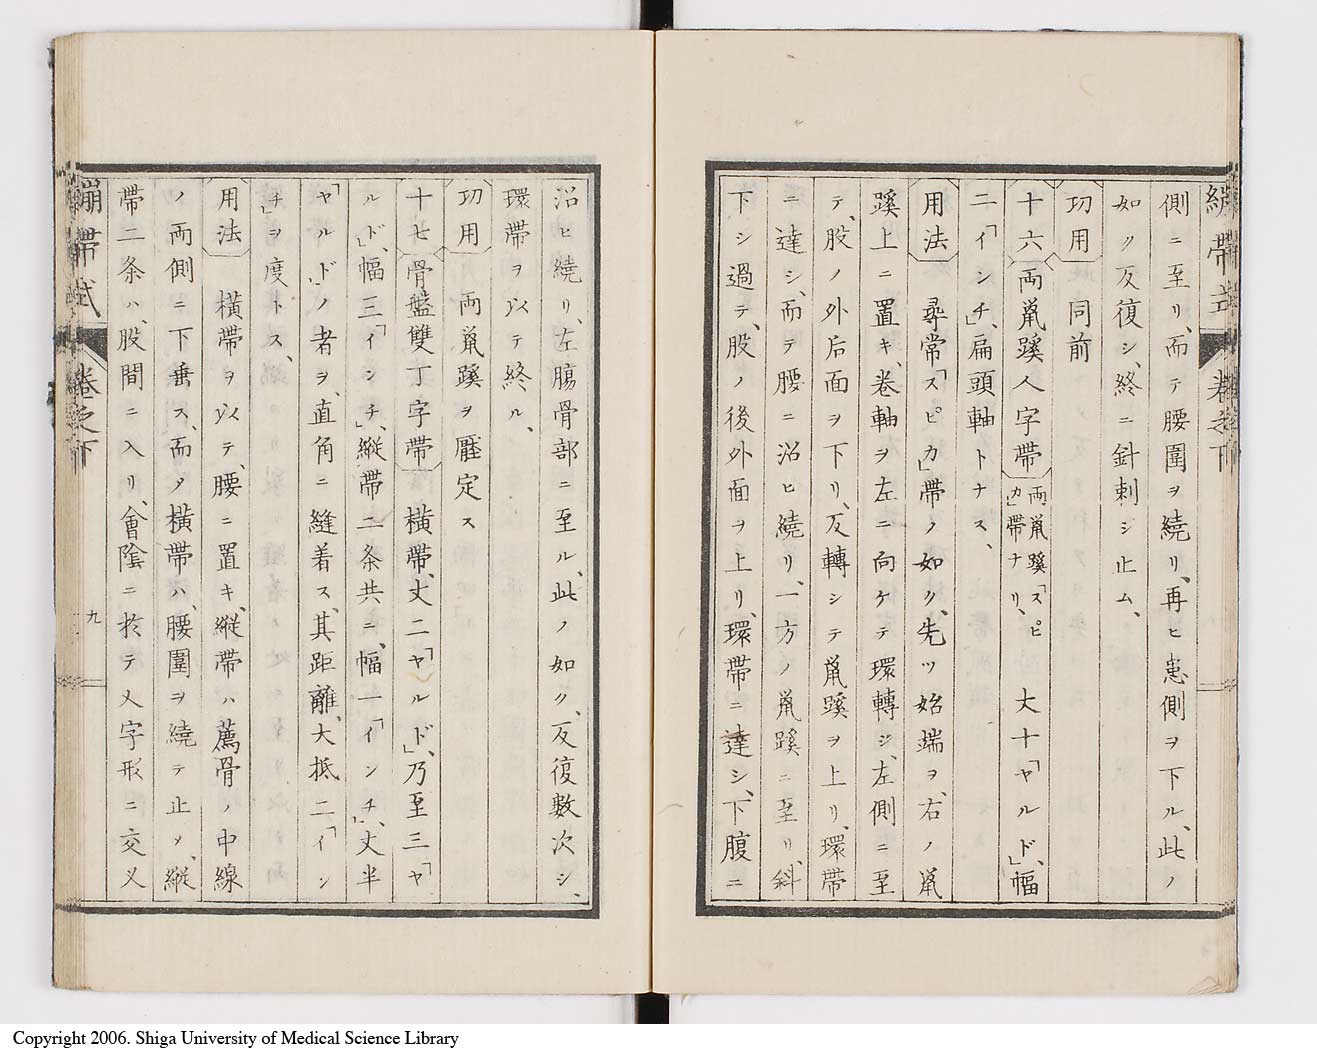 繃帶式 卷之下
側ニ至リ、而テ腰圍ヲ繞リ、再ヒ患側ヲ下ル、此ノ
如ク反復シ、終ニ針刺シ止ム、
功用 同前
十六 両鼠蹊人字帶 両鼠蹊「スピカ」帶ナリ、 丈十「ヤルド」、幅
二「インチ」、扁頭軸トナス、
用法 尋常「スピカ」帶ノ如ク、先ツ始端ヲ、右ノ鼠
蹊上ニ置キ、卷軸ヲ左ニ向ケテ環轉シ、左側ニ至
テ、股ノ外后面ヲ下リ、反轉シテ鼠蹊ヲ上リ、環帶
ニ達シ、而テ腰ニ沿ヒ繞リ、一方ノ鼠蹊ニ至リ、斜
下シ過テ、股ノ後外面ヲ上リ、環帶ニ達シ、下腹ニ
沿ヒ繞リ、左腸骨部ニ至ル、此ノ如ク、反復數次シ、
環帶ヲ以テ終ル、
功用 両鼠蹊ヲ壓定ス
十七 骨盤雙丁字帶 横帶、丈二「ヤルド」、乃至三「ヤ
ルド」、幅三「インチ」、縦帶二条共ニ、幅十「インチ」、丈半
「ヤルド」ノ者ヲ、直角ニ縫着ス、其距離、大抵二「イン
チ」ヲ度トス、
用法 横帶ヲ以テ、腰ニ置キ、縦帶ハ薦骨ノ中線
ノ両側ニ下垂ス、而〆横帶ハ、腰圍ヲ繞テ止〆、縦
帶二条ハ、股間ニ入リ、會陰ニ於テ乂字形ニ交乂
繃帶式 卷之下
九
Copyright 2006. Shiga University of Medical Science Library